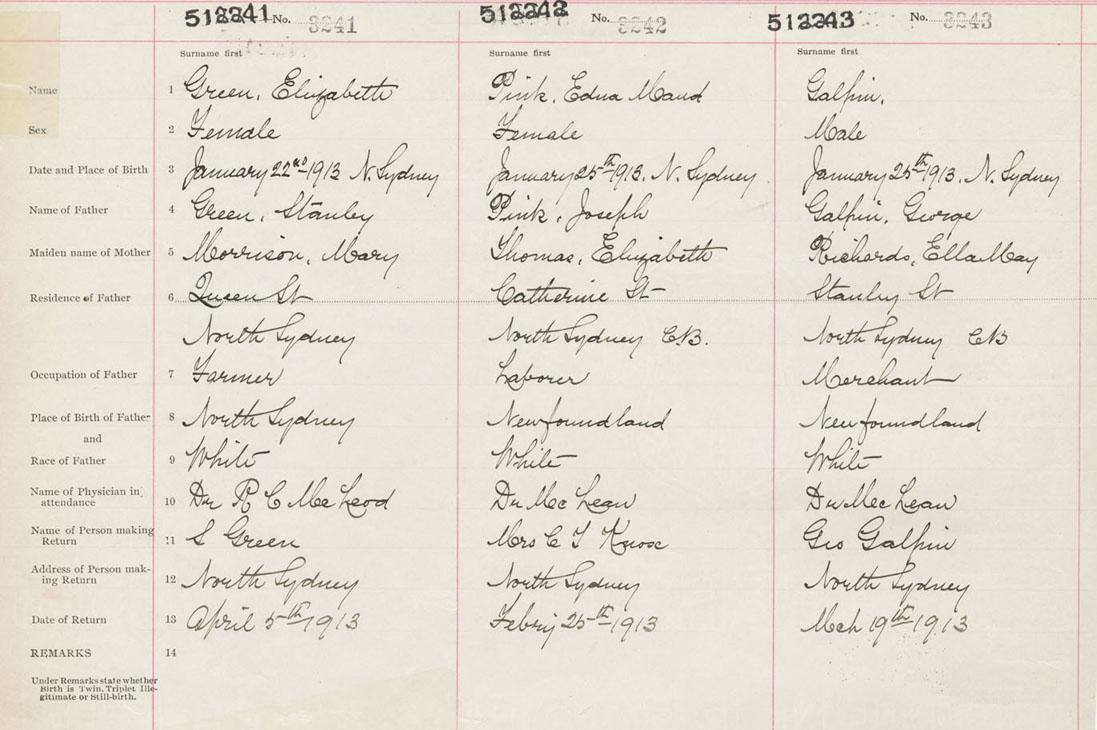 512241 No. 3241 512242 No. 3242 512243 No. 3243
Surname first Surname first Surname first
Name 1 Green, Elizabeth Pink, Edna Maud Galpin,
Sex 2 Female Female Male
Date and Place of Birth 3 January 22nd 1913 N. Sydney January 25th 1913. N. Sydney January 25th 1913. N. Sydney
Name of Father 4 Green, Stanley Pink, Joseph Galpin, George
Maiden name of Mother 5 Morrison, Mary Thomas, Elizabeth Richards, Ella May
Residence of Father 6 Queen St Catherine St Stanley St
North Sydney North Sydney C.B. North Sydney CB
Occupation of Father 7 Farmer Laborer Merchant
Place of Birth of Father 8 North Sydney Newfoundland Newfoundland
and
Race of Father 9 White White White
Name of Physician in
attendance 10 Dr R C McLeod Dr McLean Dr McLean
Name of Person making
Return 11 S Green Mrs C T Geo Galpin
Address of Person mak-
ing Return 12 North Sydney North Sydney North Sydney
Date of Return 13 April 5th 1913 Febry 25th 1913 Mch 19th 1913
REMARKS 14
Under Remarks state whether
Birth is Twin, Triplet Ille-
gitimate or Still-birth.